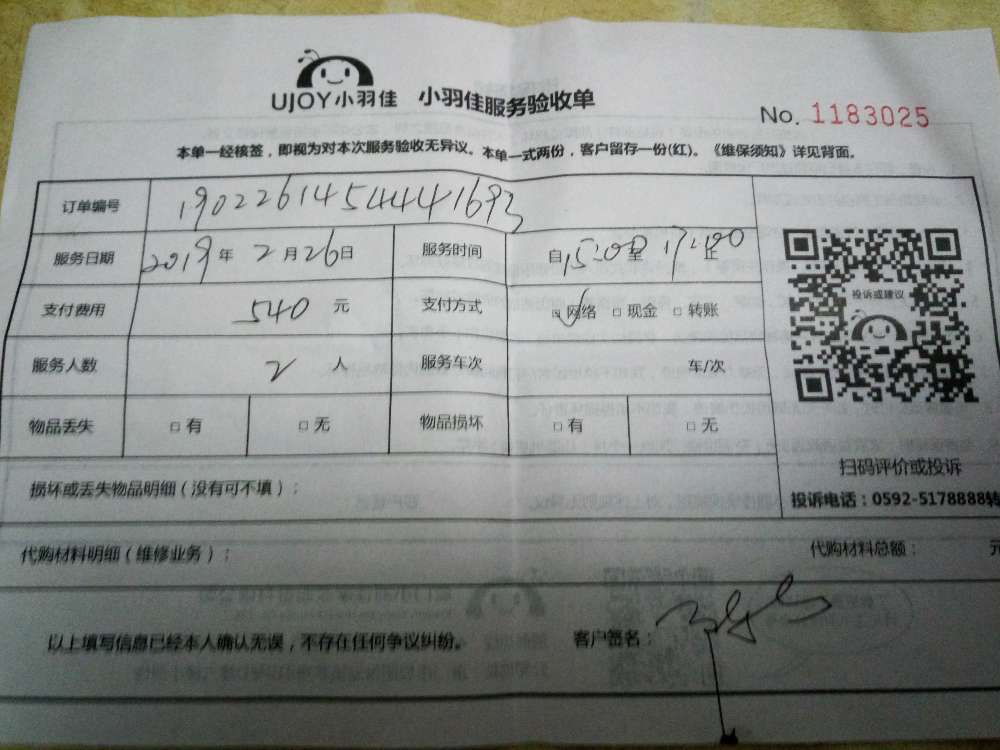 UJOY小羽佳 小羽佳服务验收单
No. 1183025
本单一经核签，即视为对本次服务验收无异议。本单一式两份，客户留存一份(红)。《维保须知》详见背面。
订单编号 19022614544441693
服务日期 2019年2月26日 服务时间 自15:00至17:00止
支付费用 540元 支付方式 ☑网络 □现金 □转账
服务人数 2人 服务车次 车/次
物品丢失 □有 □无 物品损坏 □有 □无
投诉或建议
扫码评价或投诉
投诉电话：0592-5178888转
损坏或丢失物品明细（没有可不填）：
代购材料明细（维修业务）： 代购材料总额： 元
以上填写信息已经本人确认无误，不存在任何争议纠纷。 客户签名：